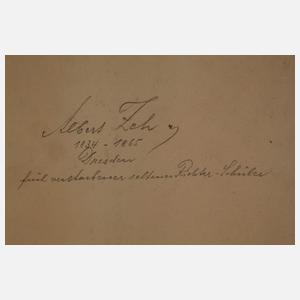 Albert Zeh
1834 - 1865
Dresden
früh verstorbener seltener Richter-Schüler